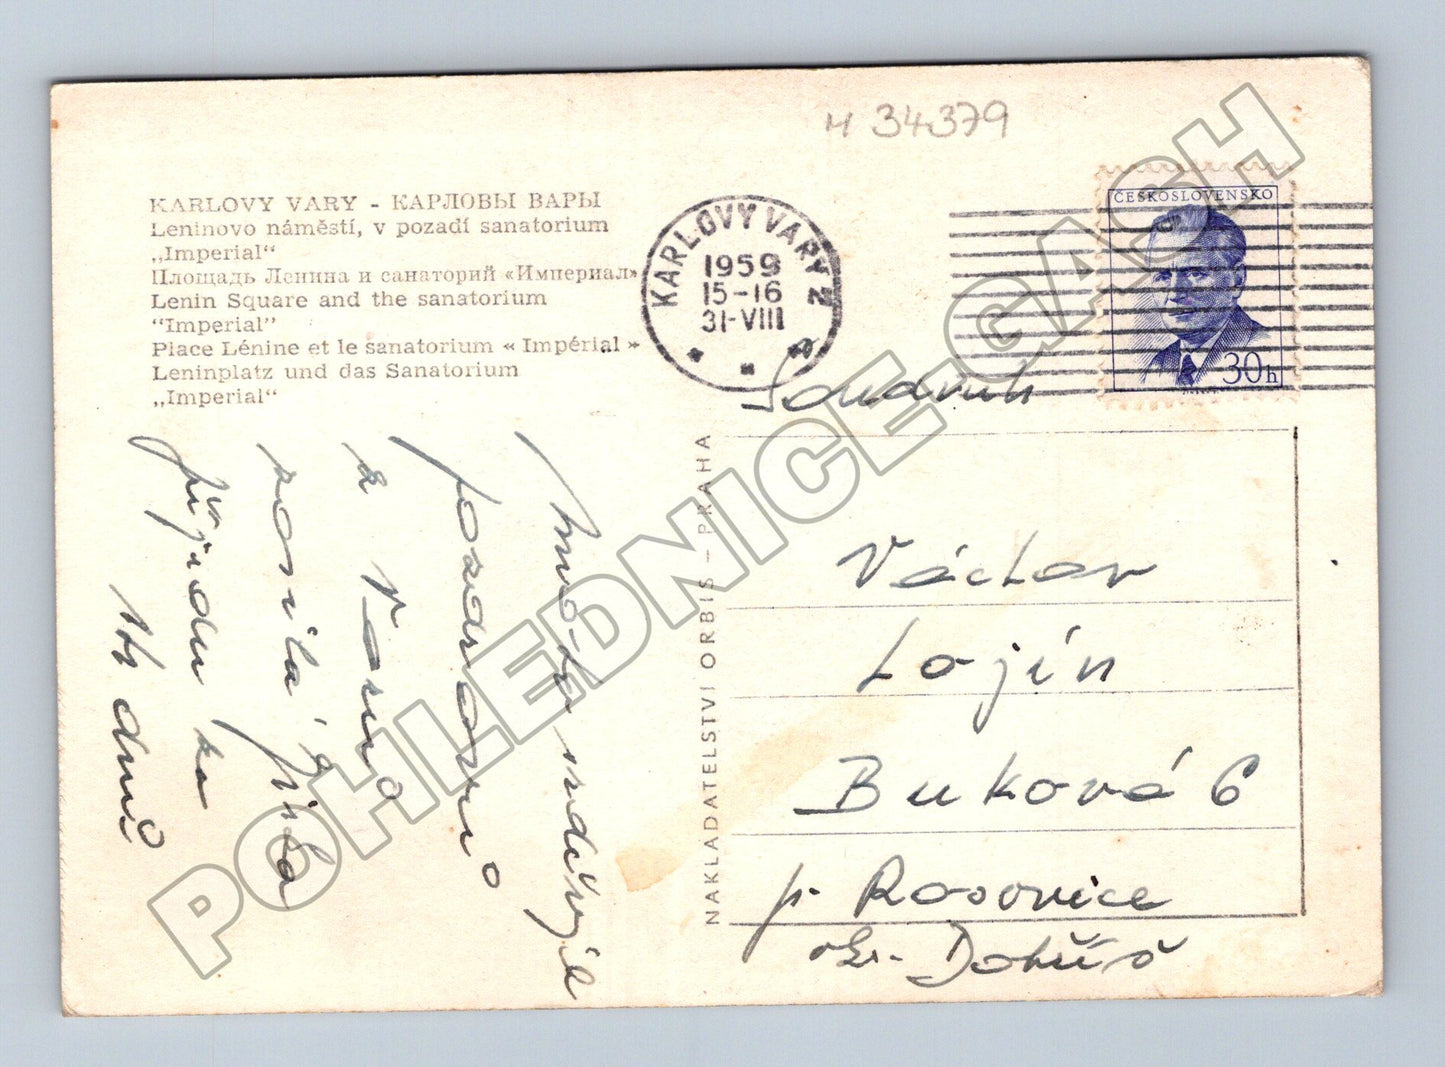 H 34379
KARLOVY VARY - КАРЛОВЫ ВАРЫ
Leninovo náměstí, v pozadí sanatorium
„Imperial“
Площадь Ленина и санаторий «Империал»
Lenin Square and the sanatorium
“Imperial”
Place Lénine et le sanatorium « Impérial »
Leninplatz und das Sanatorium
„Imperial“
KARLOVY VARY 2
1959
15-16
31-VIII
ČESKOSLOVENSKO
30h
Mnoho srdečných
pozdravů
z Varů
posílá Jirka
přijedu za
14 dnů
NAKLADATELSTVÍ ORBIS – PRAHA
Soudruh
Václav
Lojín
Buková 6
p. Rosovice
okr. Dobříš
POHLEDNICE.CASH